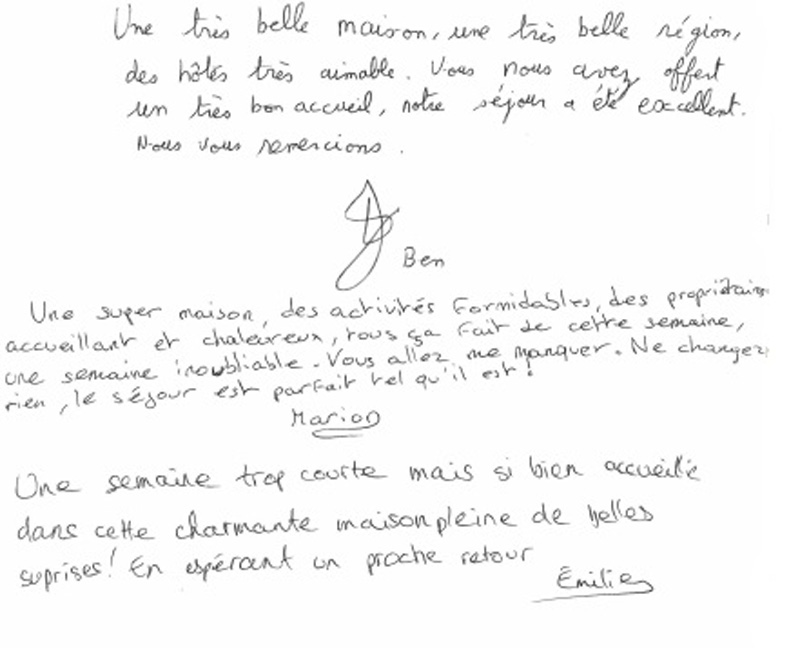 Une très belle maison, une très belle région,
des hôtes très aimable. Vous nous avez offert
un très bon accueil, notre séjour a été excellent.
Nous vous remercions.
Ben
Une super maison, des activités formidables, des propriétaires
accueillant et chaleureux, tous ça fait de cette semaine,
une semaine inoubliable. Vous allez me manquer. Ne changez
rien, le séjour est parfait tel qu'il est!
Marion
Une semaine trop courte mais si bien accueillie
dans cette charmante maison pleine de belles
suprises! En espérant un proche retour
Émilie